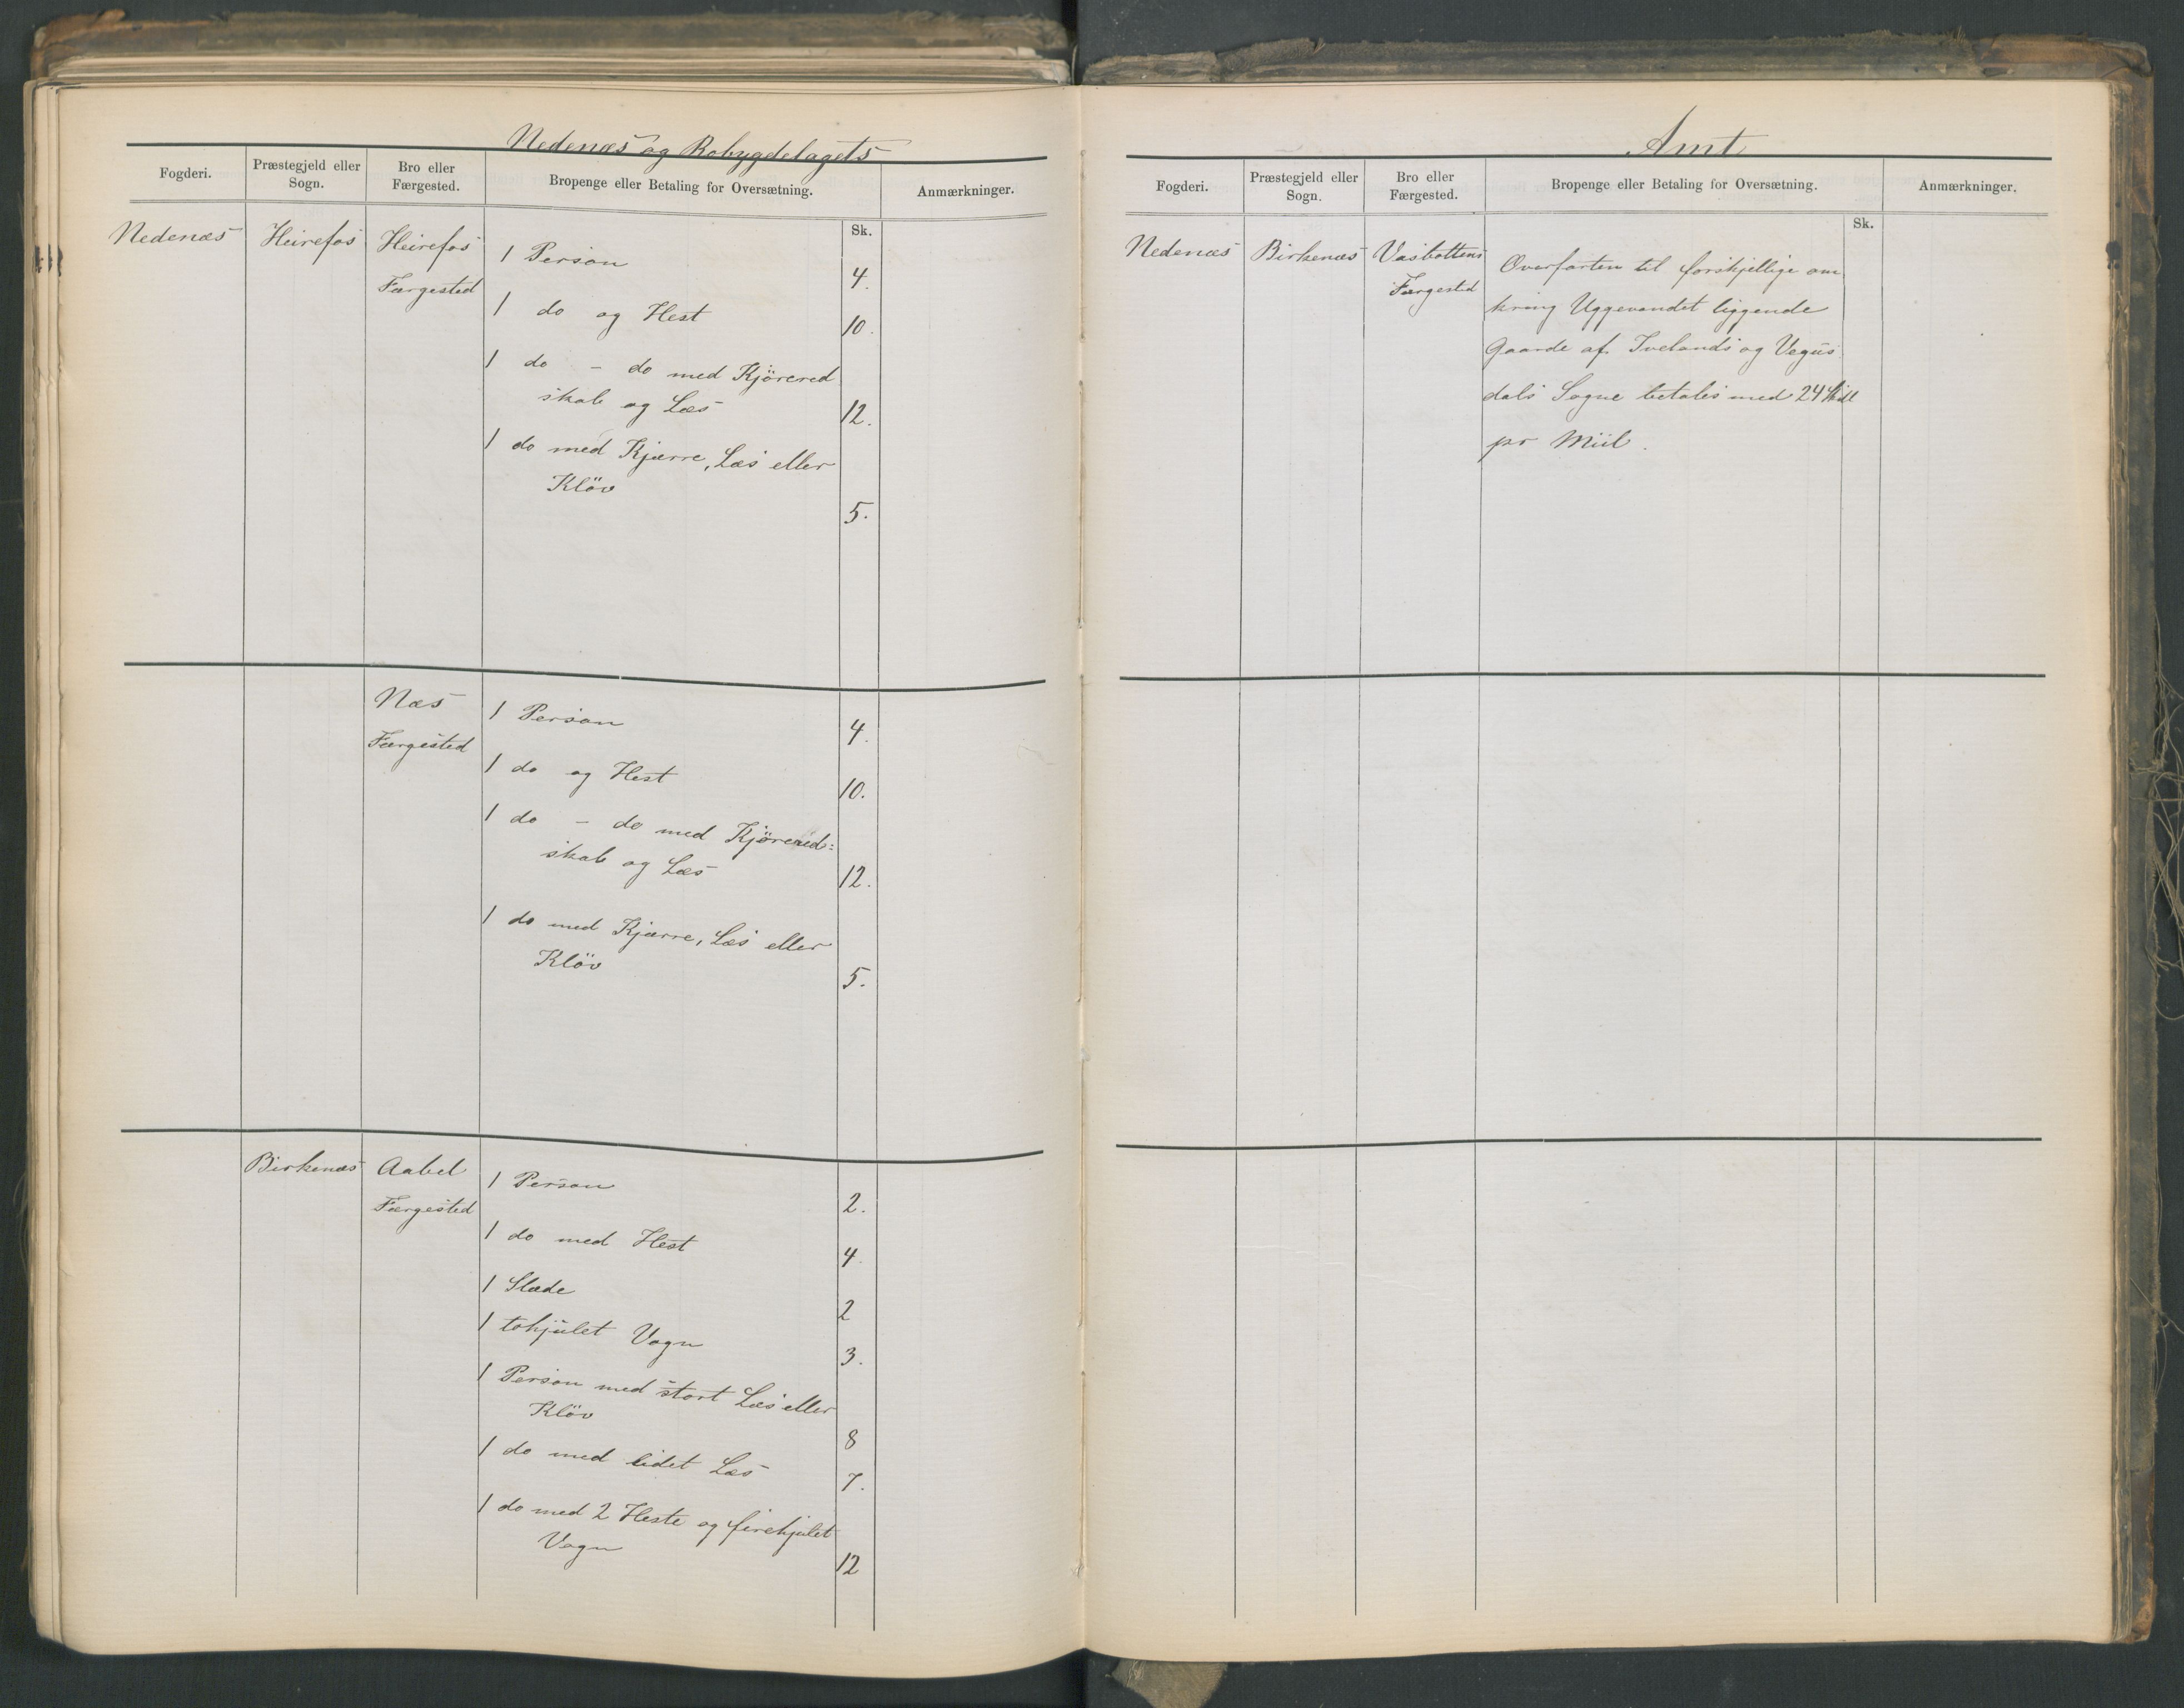 Nedenæs og Robygdelagets
Fogderi.
Præstegjeld eller
Sogn.
Bro eller
Færgested.
Bropenge eller Betaling for Oversætning.
Anmærkninger.
Sk.
Nedenæs Heirefos Heirefos
Færgested
1 Person 4.
1 do og Hest 10.
1 do - do med Kjörered
skab og Læs 12.
1 do med Kjærre, Læs eller
Klöv 5.
Næs
Færgested
1 Person 4.
1 do og Hest 10.
1 do - do med Kjörered=
skab og Læs 12.
1 do med Kjærre, Læs eller
Klöv 5.
Birkenæs Aabel
Færgested
1 Person 2.
1 do med Hest 4.
1 Slæde 2
1 tohjulet Vogn 3.
1 Person med stort Læs eller
Klöv 8
1 do med lidet Læs 7.
1 do med 2 Heste og firehjulet
Vogn 12
Amt
Fogderi.
Præstegjeld eller
Sogn.
Bro eller
Færgested.
Bropenge eller Betaling for Oversætning.
Anmærkninger.
Sk.
Nedenæs Birkenæs Vasbottens
Færgested
Overfarten til forskjellige om
kring Uggevandet liggende
Gaarde af Ivelands og Vegus
dals Sogne betales med 24 Skill
pr Miil.